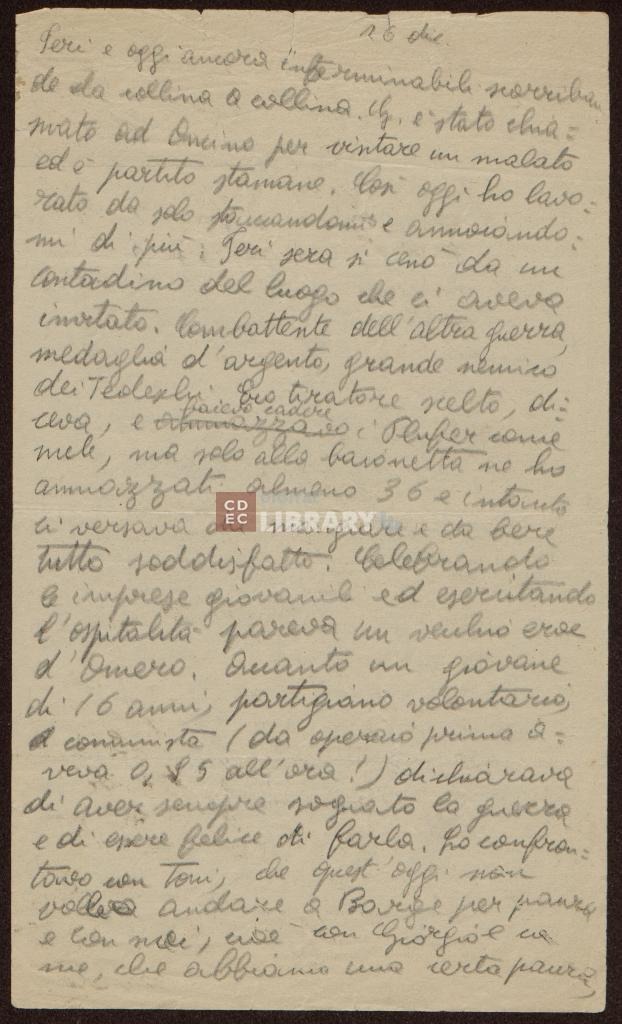 26 dic.
Ieri e oggi ancora interminabili scorriban
de da collina a collina. G. è stato chia=
mato ad Oncino per visitare un malato
ed è partito stamane. Così oggi ho lavo=
rato da solo stancandomi e annoiando=
mi di più. Ieri sera si cenò da un
contadino del luogo che ci aveva
invitato. Combattente dell'altra guerra,
medaglia d'argento, grande nemico
dei Tedeschi. Ero tiratore scelto, di=
facevo cadere
ceva, e ammazzavo i come
mele, ma solo alla baionetta ne ho
ammazzati almeno 36 e intanto
ci versava da mangiare e da bere
CDEC LIBRARY
tutto soddisfatto. Celebrando
le imprese giovanili ed esercitando
l'ospitalità pareva un vecchio eroe
d'Omero. Quanto un giovane
di 16 anni, partigiano volontario,
comunista (da operaio prima a=
veva 0,85 all'ora!) dichiarava
di aver sempre sognato la guerra
e di essere felice di farla. Lo confron=
tavo con Toni, che quest'oggi non
voleva andare a Barge per paura
e con noi, cioè con Giorgio e
me, che abbiamo una certa paura,